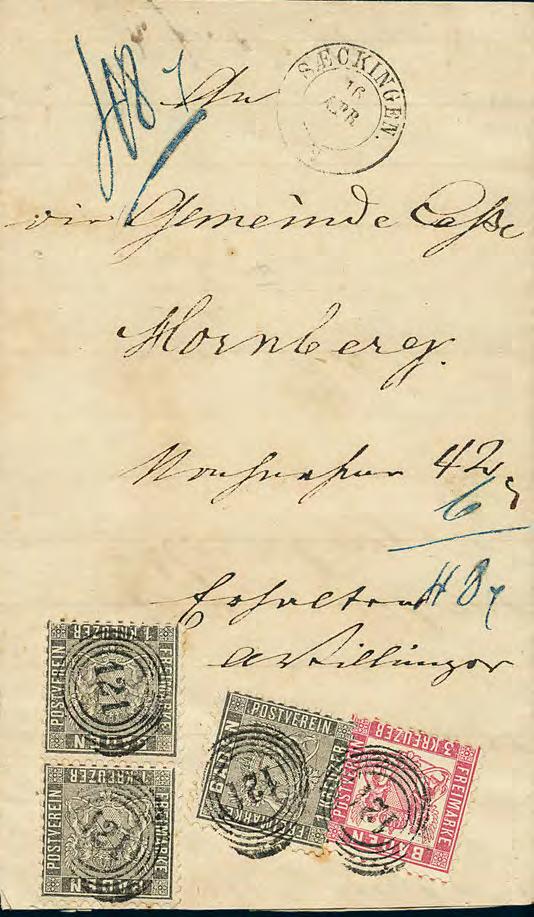 SÆCKINGEN.
16
APR
48 x
An
die Gemeinde Casse
Hornberg.
Nachnahme 42 x
6
48 x
Erhalten
A Villinger
POSTVEREIN
1 KREUZER
FREIMARKE
BADEN
121
POSTVEREIN
1 KREUZER
FREIMARKE
BADEN
121
POSTVEREIN
1 KREUZER
FREIMARKE
BADEN
121
POSTVEREIN
3 KREUZER
FREIMARKE
BADEN
121